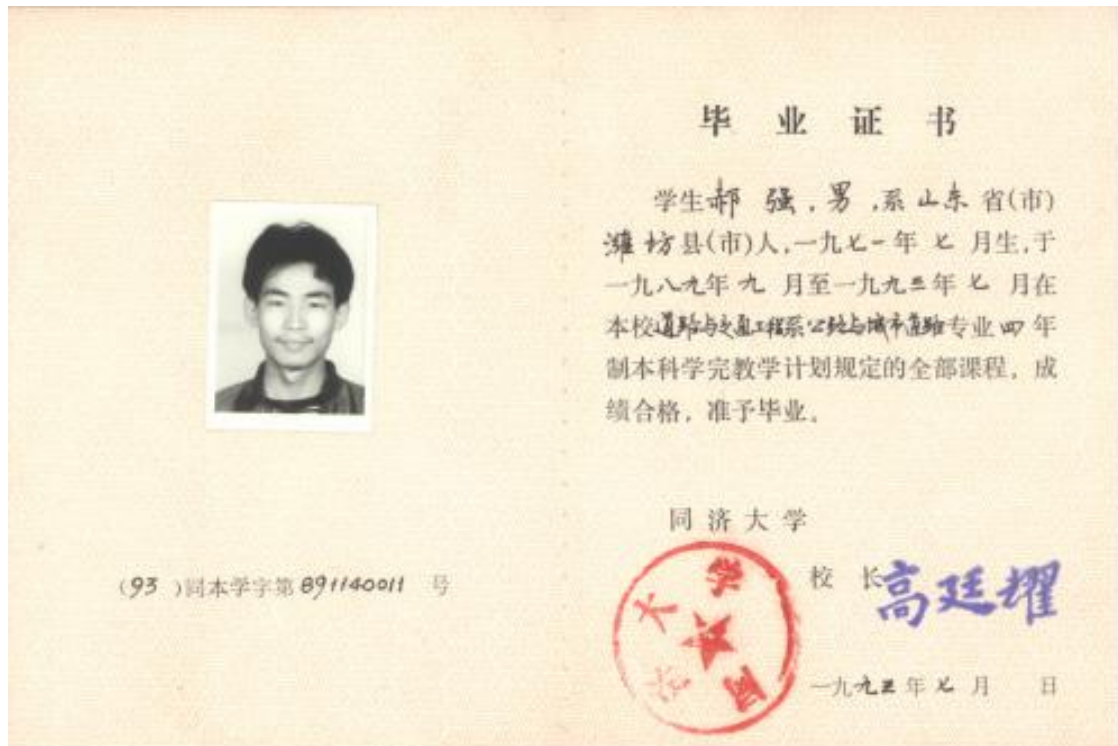 毕业证书
学生郝强，男，系山东省(市)
潍坊县(市)人，一九七一年七月生，于
一九八九年九月至一九九三年七月在
本校道路与交通工程系公路与城市道路专业四年
制本科学完教学计划规定的全部课程，成
绩合格，准予毕业。
同济大学
校长高廷耀
同济大学
一九九三年七月 日
(93)同本学字第891140011号